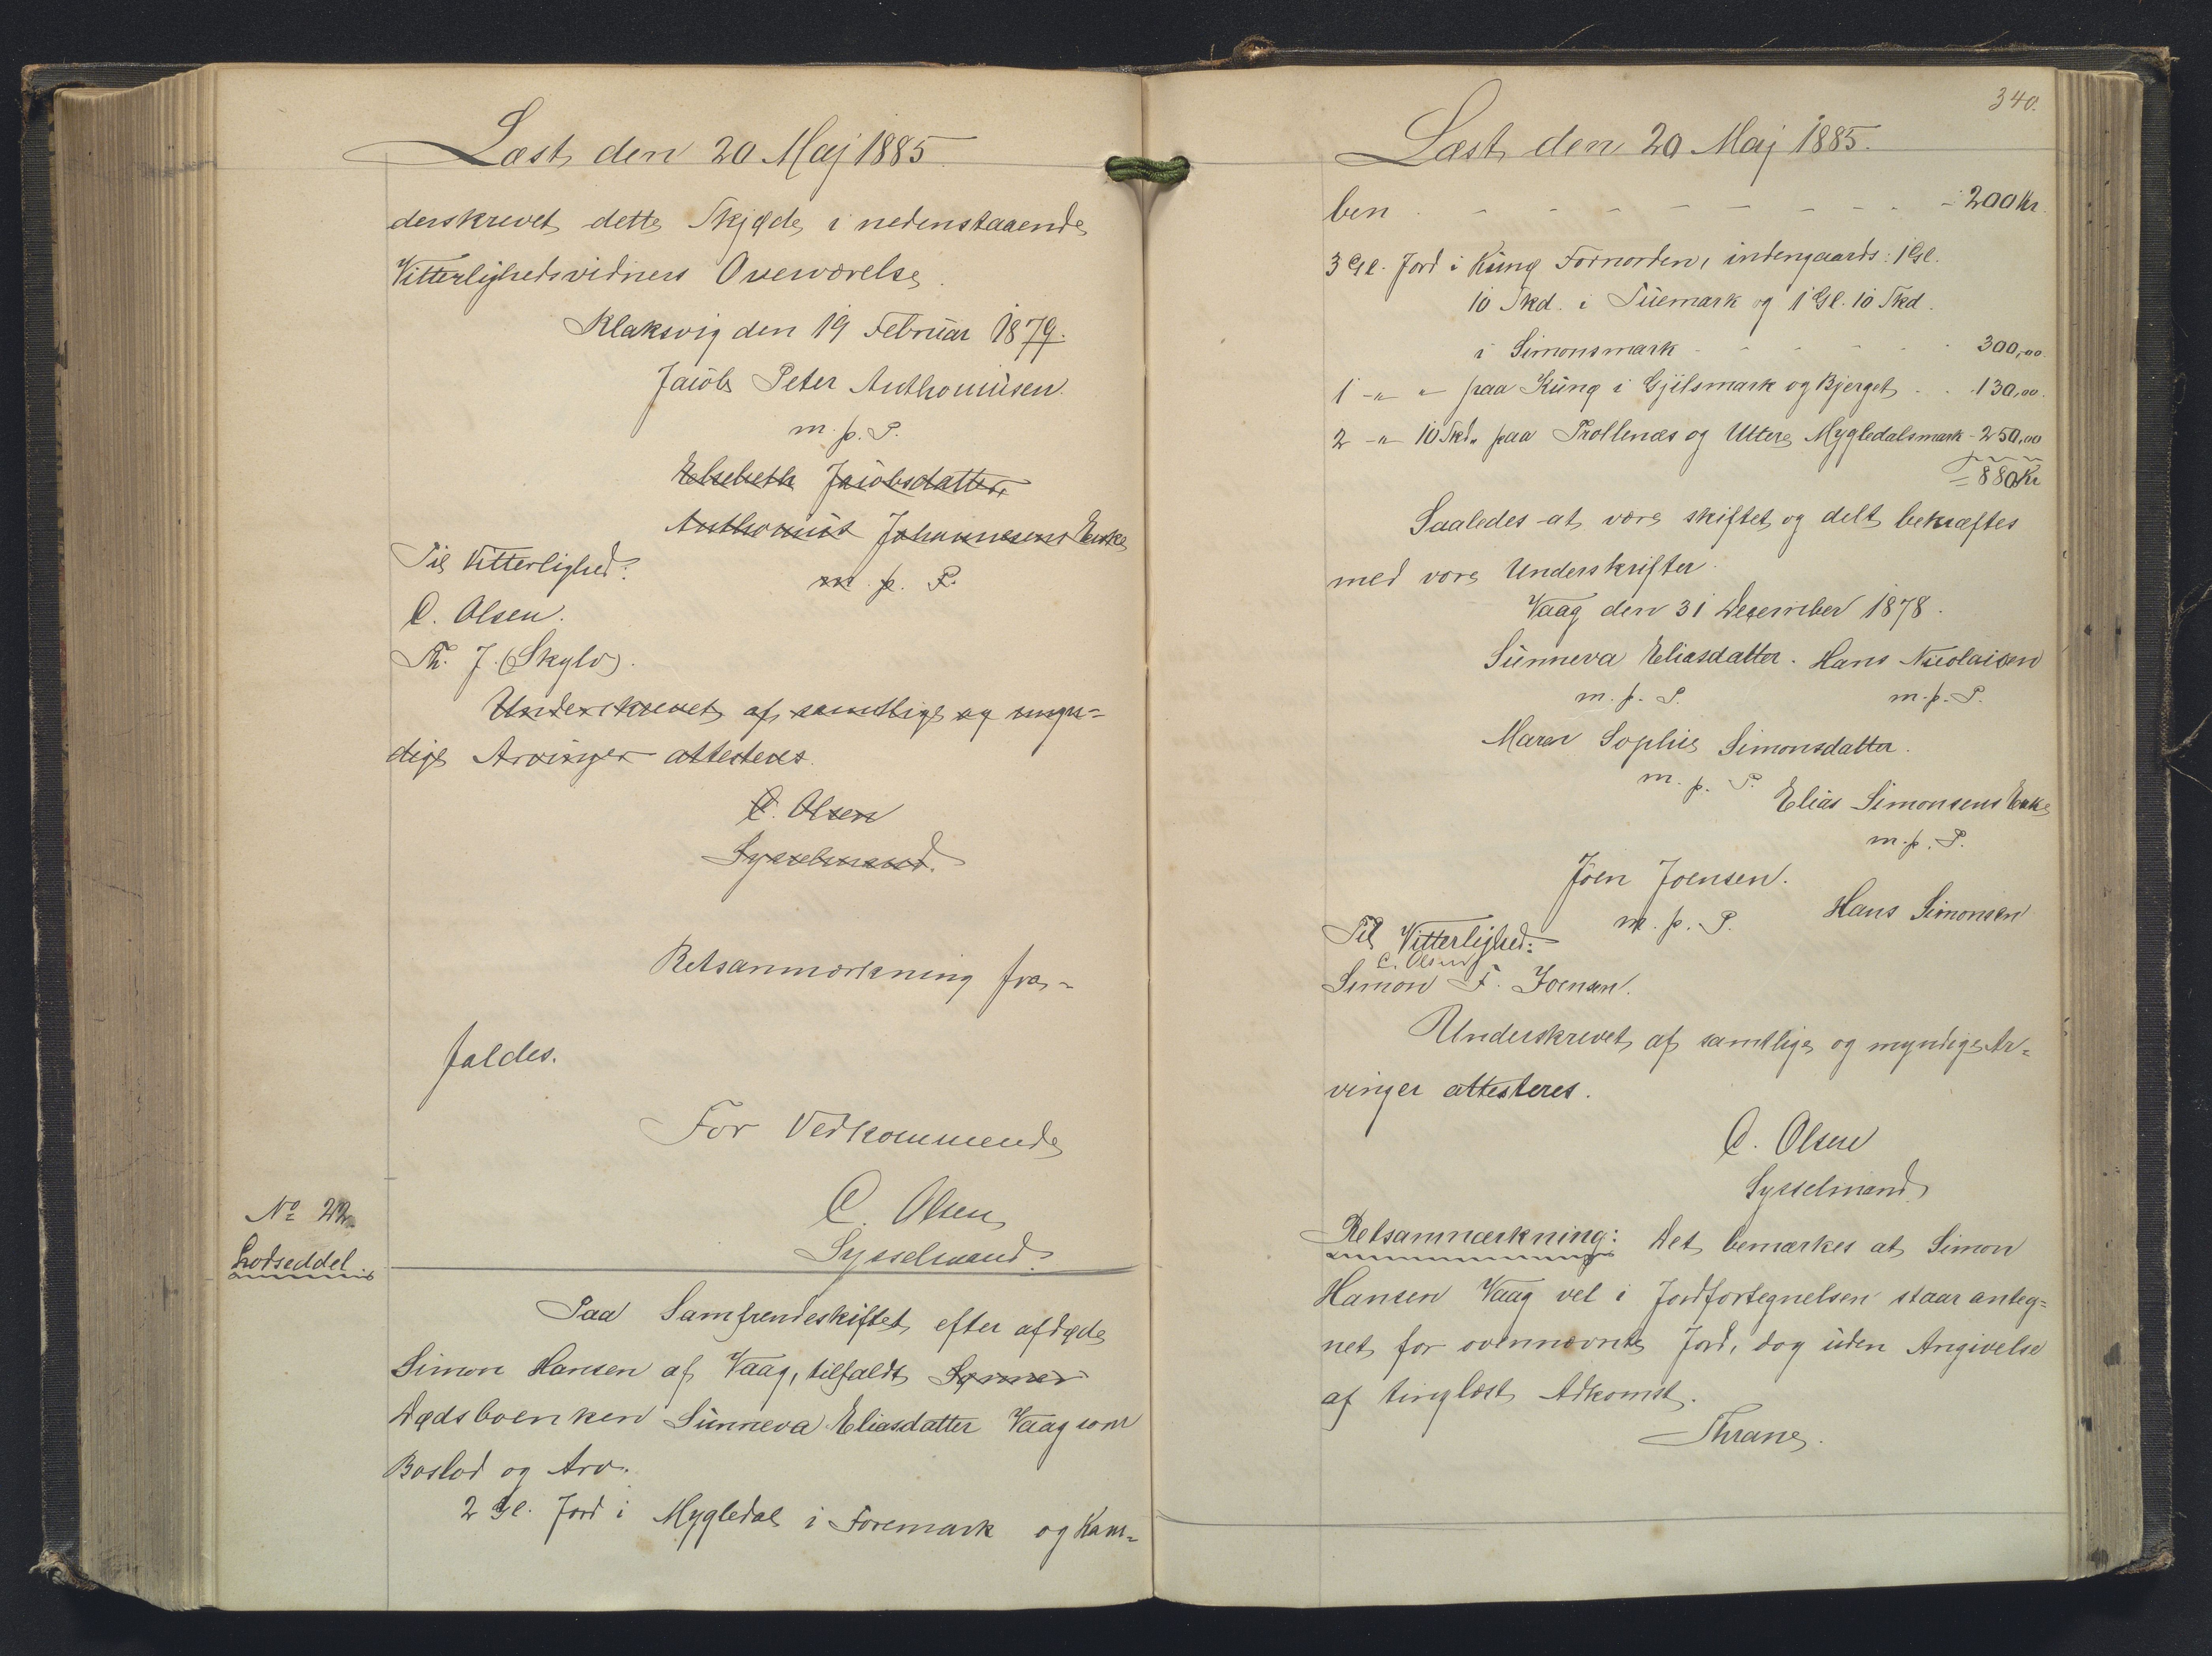 Læst den 20 Maj 1885.
derskrevet dette Skjøde i nedenstaaende
Vitterlighedsvidners Overværelse.
Klaksvig den 19 Februar 1879.
Jacob Peter Anthoniusen.
m. p. P.
Elsebeth Jacobsdatter,
Anthonius Johannesens Enke
m. p. P.
Til Vitterlighed:
C. Olsen.
Th. J. (Skylv).
Underskrevet af samtlige og myn=
dige Arvinger attesteres.
C. Olsen
Sysselmand.
Retsanmærkning fra=
faldes.
For Vedkommende
C. Olsen
Sysselmand.
No 22.
Lodseddel.
Paa Samfrendeskiftet efter afdøde
Simon Hansen af Vaag, tilfaldt
Dødsboenken Sunneva Eliasdatter Vaag som
Boslod og Arv.
2 Gl. Jord i Mygledal i Foremark og Kam=
340.
Læst den 20 Maj 1885.
ben - - - - - - - - - 200 Kr.
3 Gl. Jord i Kung Fornorden, indengaards: 1 Gl.
10 Skd. i Suemark og 1 Gl. 10 Skd.
i Simonsmark - - - - - 300,00.
1 -"- " paa Kung i Gjilsmark og Bjerget . . 130,00.
2 -"- 10 Skd. paa Trollenæs og Uttere Mygledalsmark - 250,00
= 880 Kr
Saaledes at være skiftet og delt bekræftes
med vore Underskrifter.
Vaag den 31 December 1878.
Sunneva Eliasdatter. Hans Nicolaisen
m. p. P. m. p. P.
Maren Sophie Simonsdatter.
m. p. P.
Elias Simonsens Enke
m. p. P.
Joen Joensen.
m. p. P. Hans Simonsen
Til Vitterlighed:
C. Olsen
Simon F. Joensen.
Underskrevet af samtlige og myndige Ar=
vinger attesteres.
C. Olsen
Sysselmand.
Retsanmærkning: Det bemærkes at Simon
Hansen Vaag vel i Jordfortegnelsen staar anteg=
net for ovennævnte Jord, dog uden Angivelse
af tinglæst Adkomst.
Thrane.